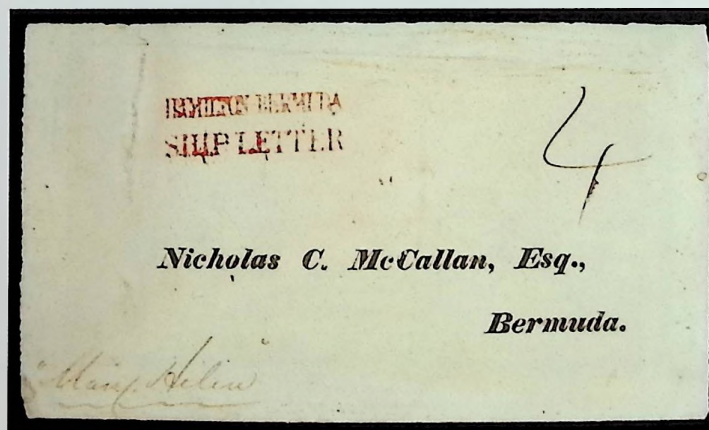 HAMILTON BERMUDA
SHIP LETTER
4
Nicholas C. McCallan, Esq.,
Bermuda.
"Mary Helen"